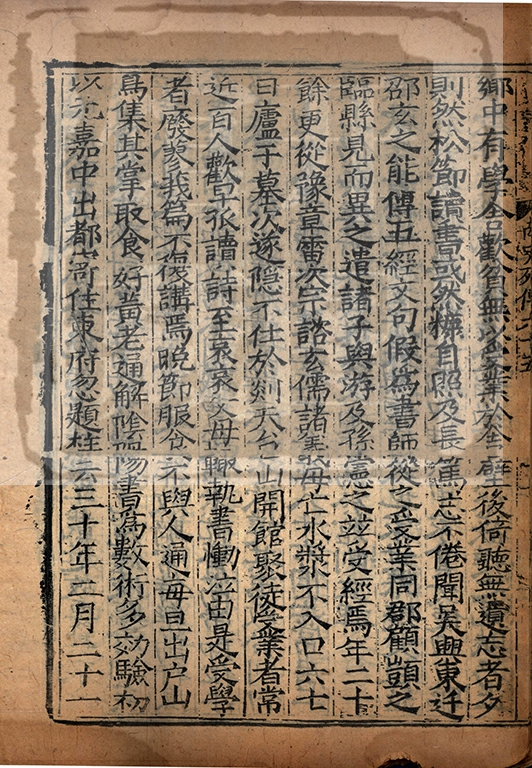 鄉中有學舍歡貧無以受業於舍壁後倚聽無遺忘者夕
則然松節讀書或然糠自照及長篤志不倦聞吳興東迁
邵玄之能傳五經文句假為書師從之受業同郡顧顗之
臨縣見而異之遣諸子與游及孫憲之並受經焉年二十
餘更從豫章雷次宗諮玄儒諸義母亡水漿不入口六七
日廬于墓次遂隐不仕於剡天台山開館聚徒受業者常
近百人歡早孤讀詩至哀哀父母輒執書慟泣由是受學
者廢蓼莪篇不復講焉晚節服食不與人通每旦出户山
鳥集其掌取食好黃老通解隂陽書為數術多効驗初
以元嘉中出都寄住東府忽題柱云三十年二月二十一